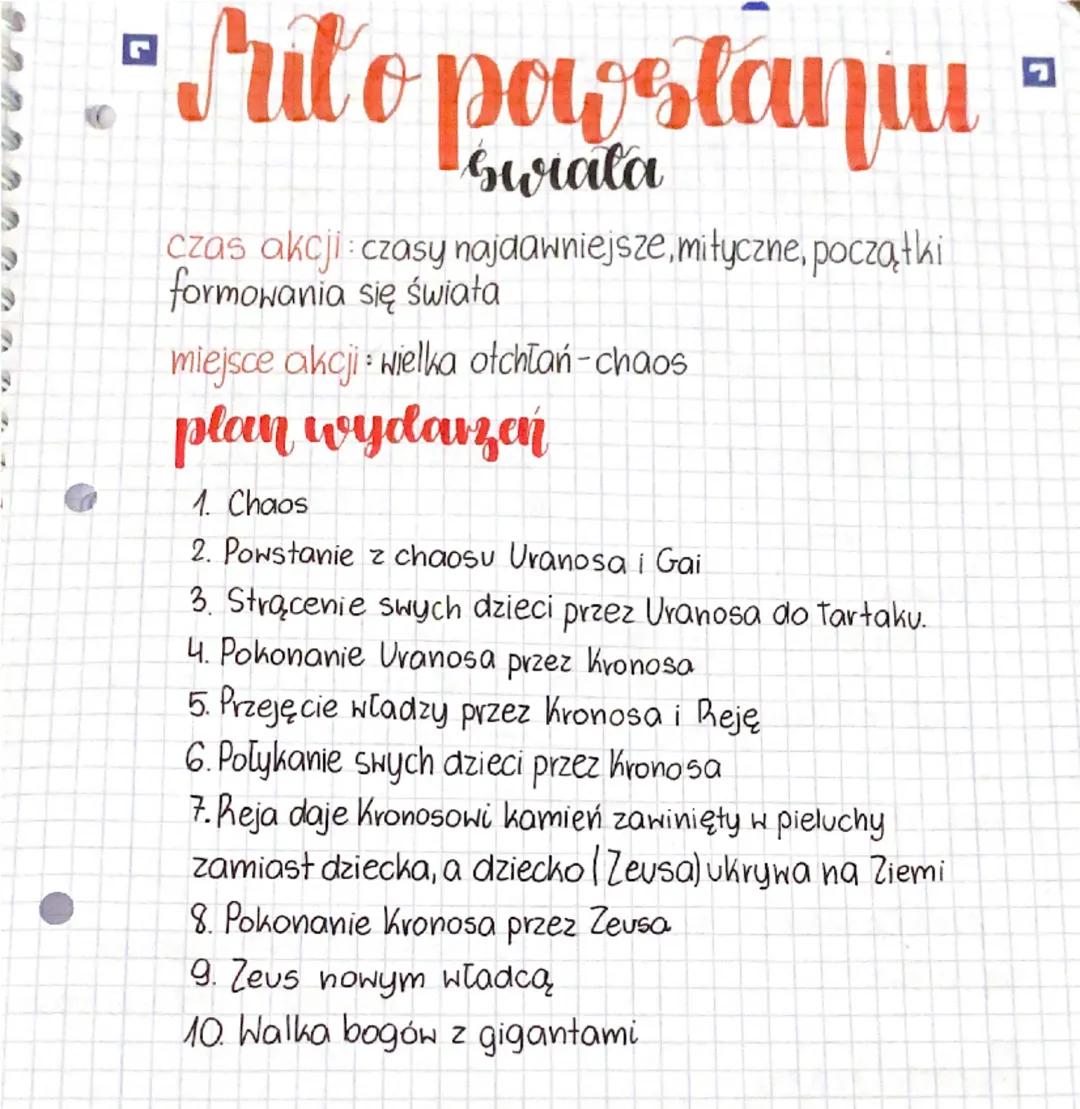 Mit o powstaniu
świata
czas akcji: czasy najdawniejsze, mityczne, początki
formowania się świata
miejsce akcji: wielka otchłań - chaos
plan wydarzeń
1. Chaos
2. Powstanie z chaosu Uranosa i Gai
3. Strącenie swych dzieci przez Uranosa do Tartaku.
4. Pokonanie Uranosa przez Kronosa
5. Przejęcie władzy przez Kronosa i Reję
6. Połykanie swych dzieci przez Kronosa
7. Reja daje Kronosowi kamień zawinięty w pieluchy
zamiast dziecka, a dziecko (Zeusa) ukrywa na Ziemi
8. Pokonanie Kronosa przez Zeusa
9. Zeus nowym władcą
10. Walka bogów z gigantami